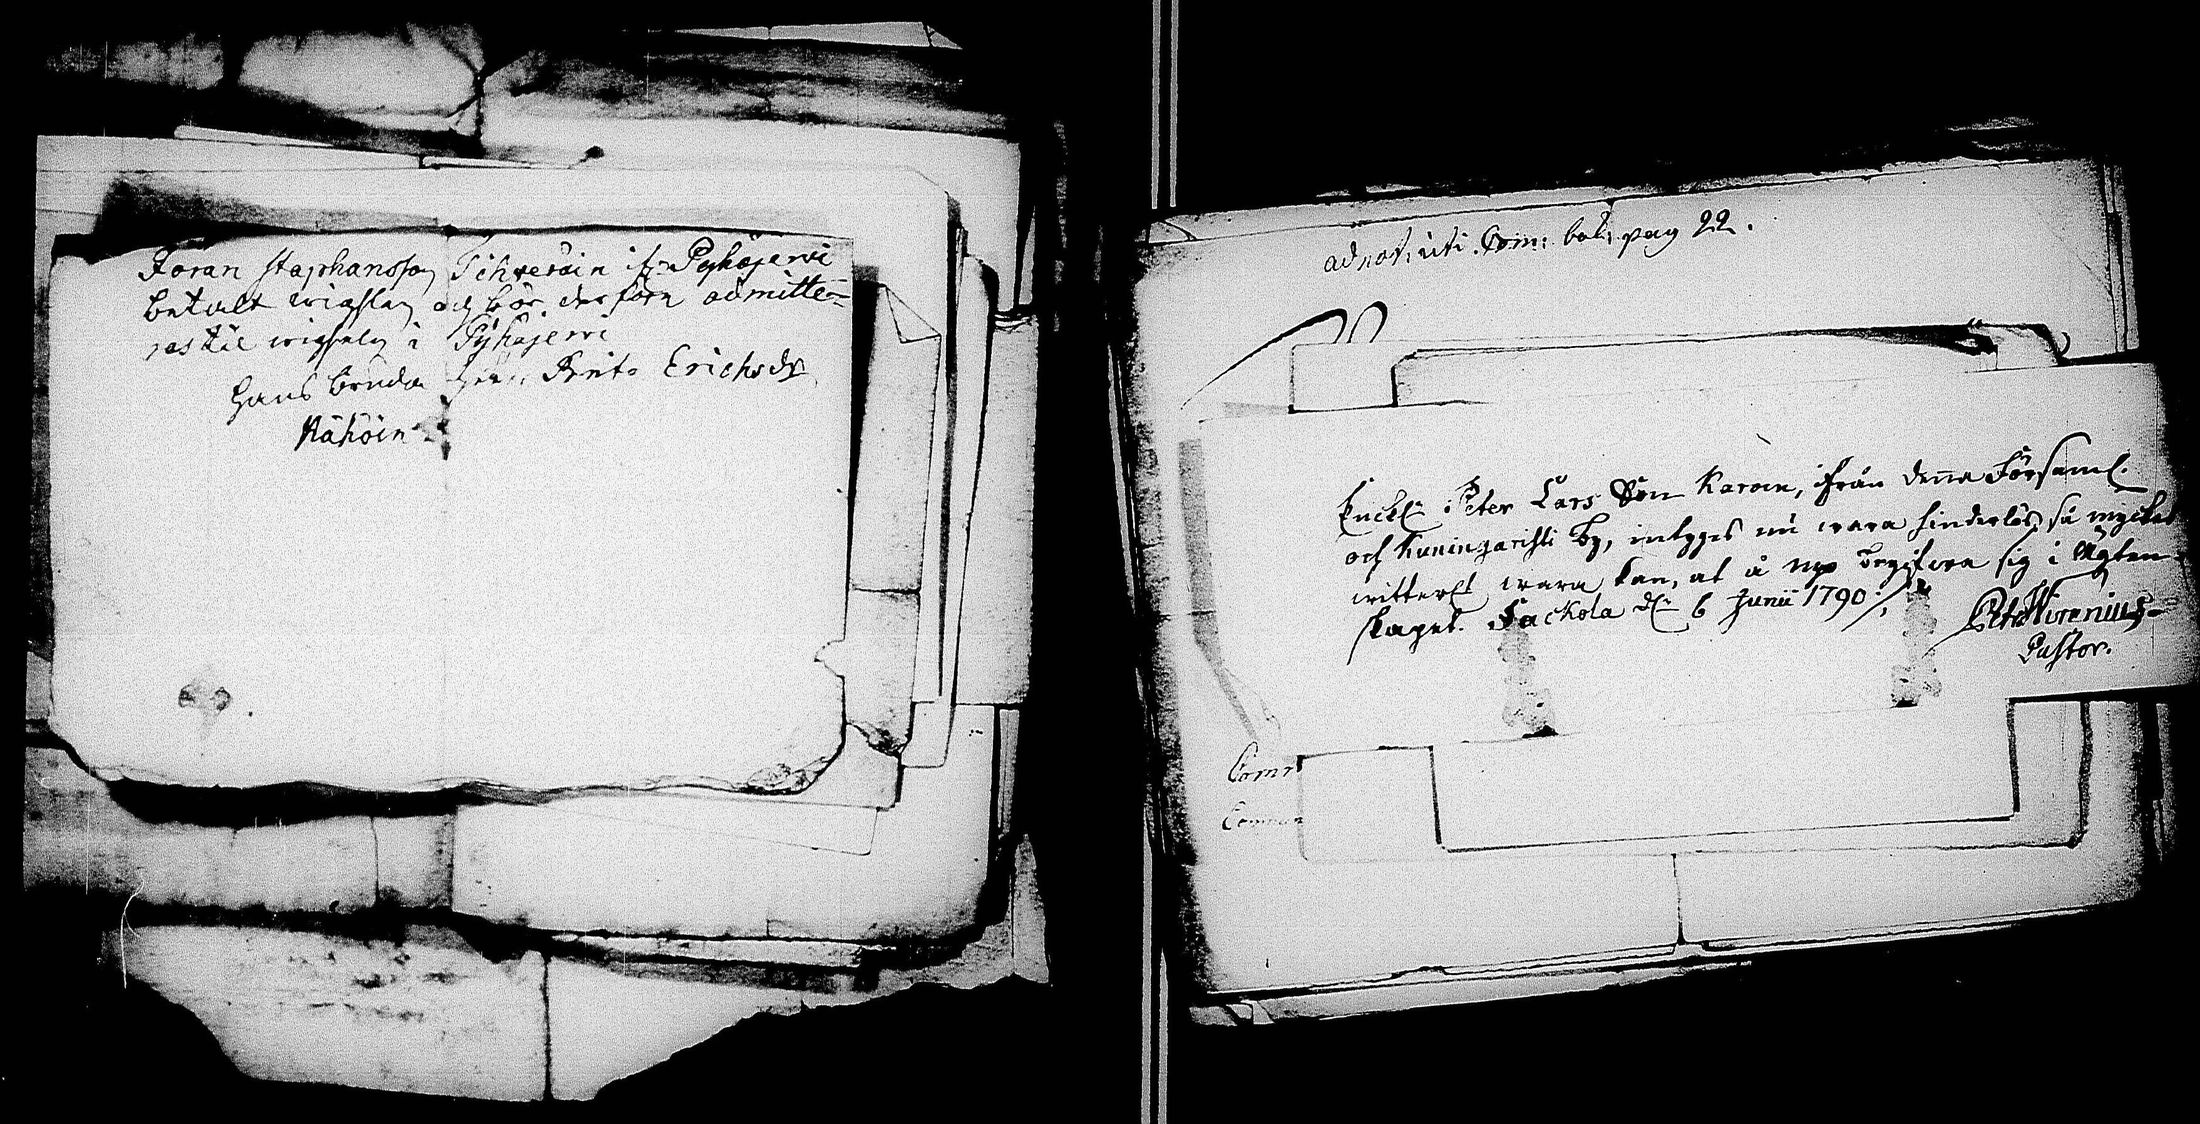 Joran Staphansson Tihveräin ifr. Pyhäjerwi
betalt wigslen och bör derföre admitte=
ras til wigseln i Pyhäjerwi
Hans bruda heter Brita Erichsdr
Nähöin
adnot. uti Com: bok. pag 22.
Enckl: Peter Lars Son Karoin, ifrån denna Församl.
och Kuningaristi By, intygas nu wara hinderlös, så mycket
witterl. wara kan, at å nyo begifwa sig i Ägten
skapet. Sackola d: 6 Junii 1790.
Petr Wirenius
Pastor.
Comm
Commun